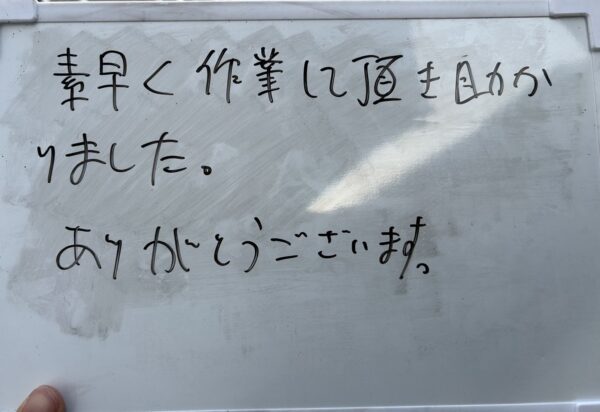 素早く作業して頂き助か
りました。
ありがとうございます。